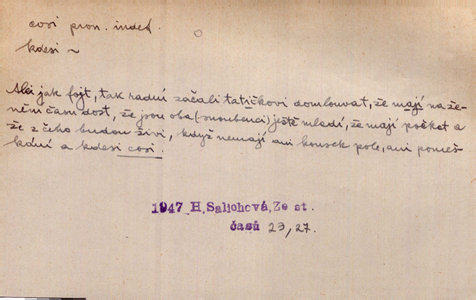 cosi pron. indef.
kdesi ~
Ale jak fojt, tak radní začali tatíčkovi domlouvat, že mají na že-
nění času dost, že jsou oba (snoubenci) ještě mladí, že mají počkat a
že z čeho budou živi, když nemají ani kousek pole, ani pomeš-
kání a kdesi cosi.
1947 H. Salichová, Ze st.
časů 23, 27.